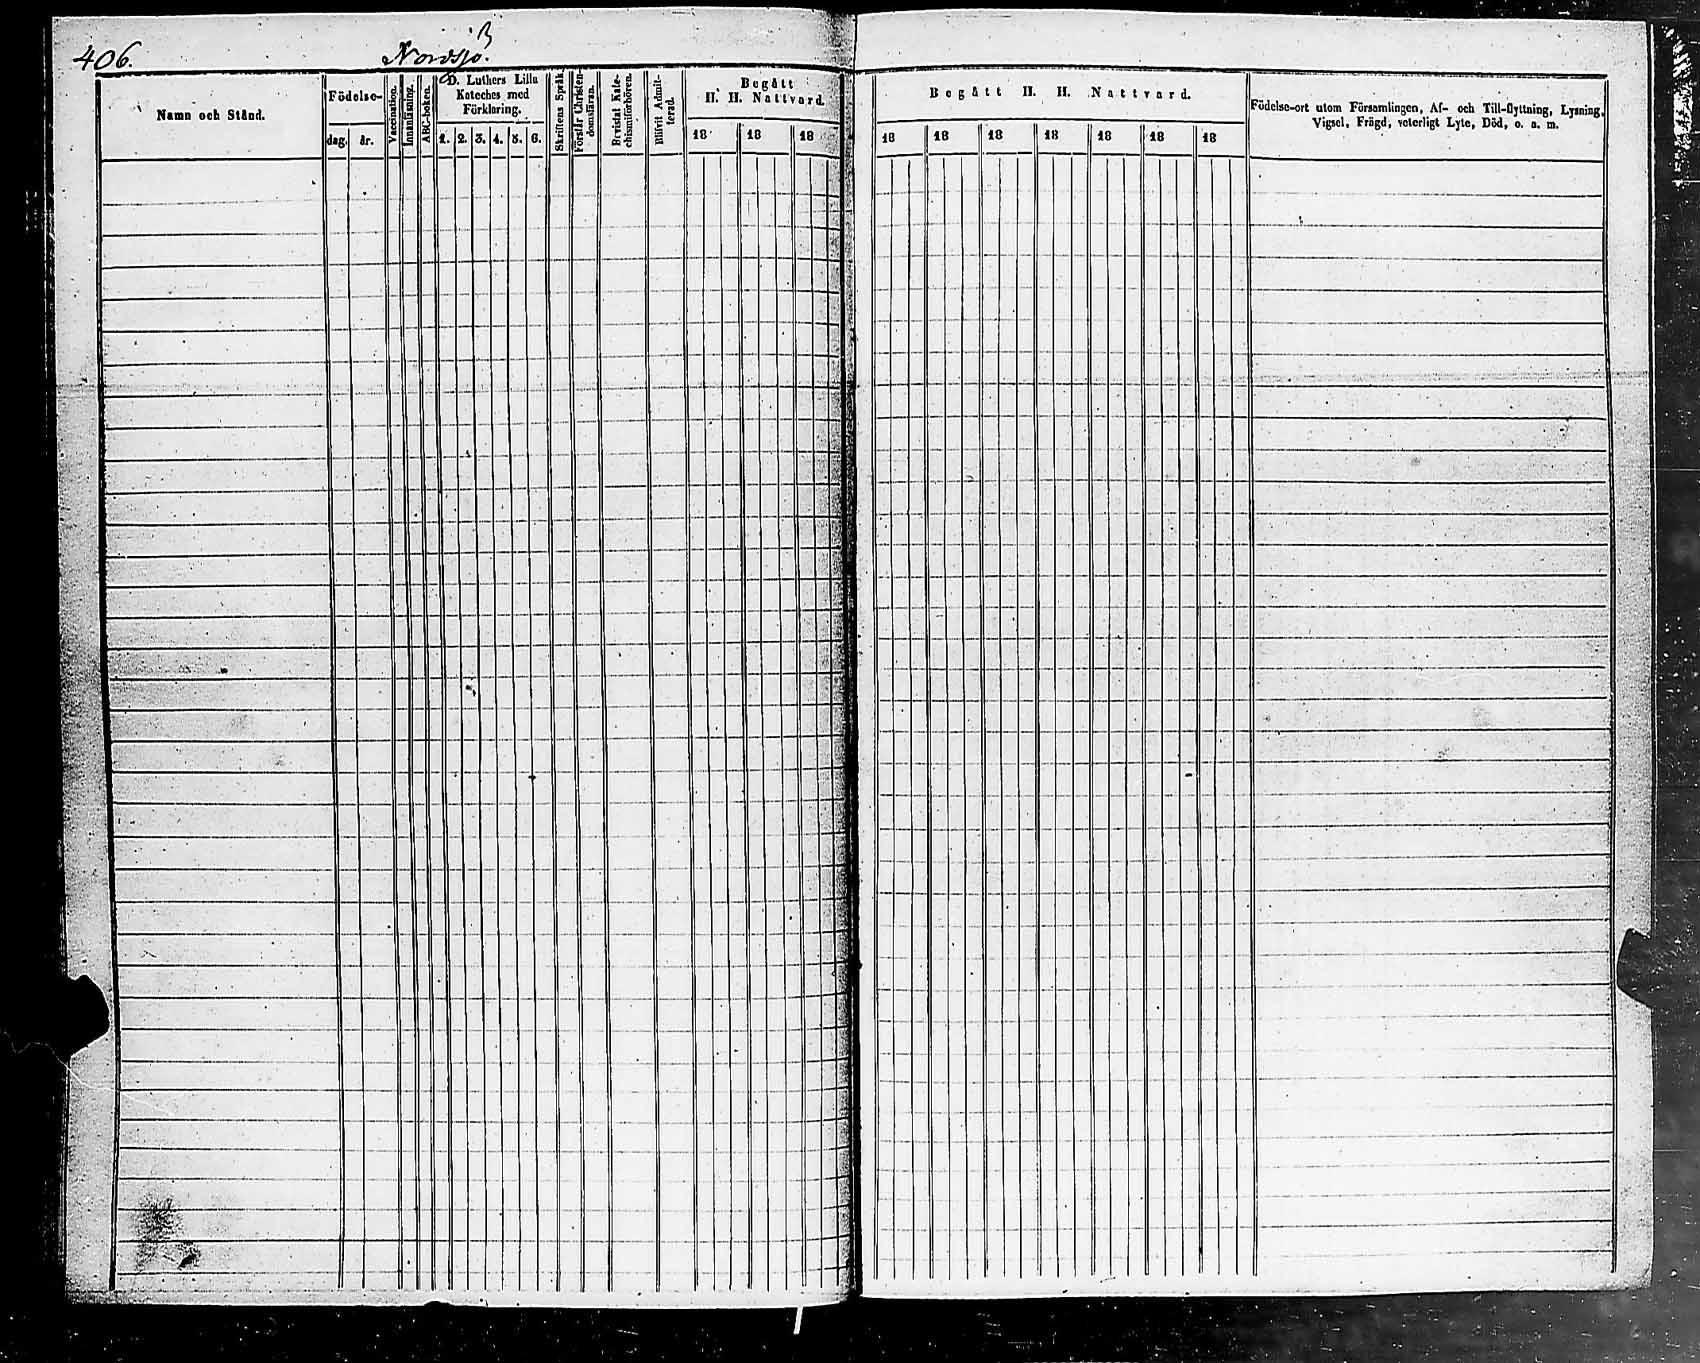 406.
Nordsjö.
Namn och Stånd.
Födelse-
dag. år.
Vaccination.
Innanläsning.
ABC-boken.
D. Luthers Lilla
Kateches med
Förklaring.
1. 2. 3. 4. 5. 6.
Skriftens Språk.
Förstår Christen-
domsläran.
Bevistat Kate-
chismiförhören.
Blifvit Admit-
terad.
Begått
H. H. Nattvard.
18 18 18
Begått H. H. Nattvard.
18 18 18 18 18 18 18
Födelse-ort utom Församlingen, Af- och Till-flyttning, Lysning,
Vigsel, Frägd, veterligt Lyte, Död, o. a. m.